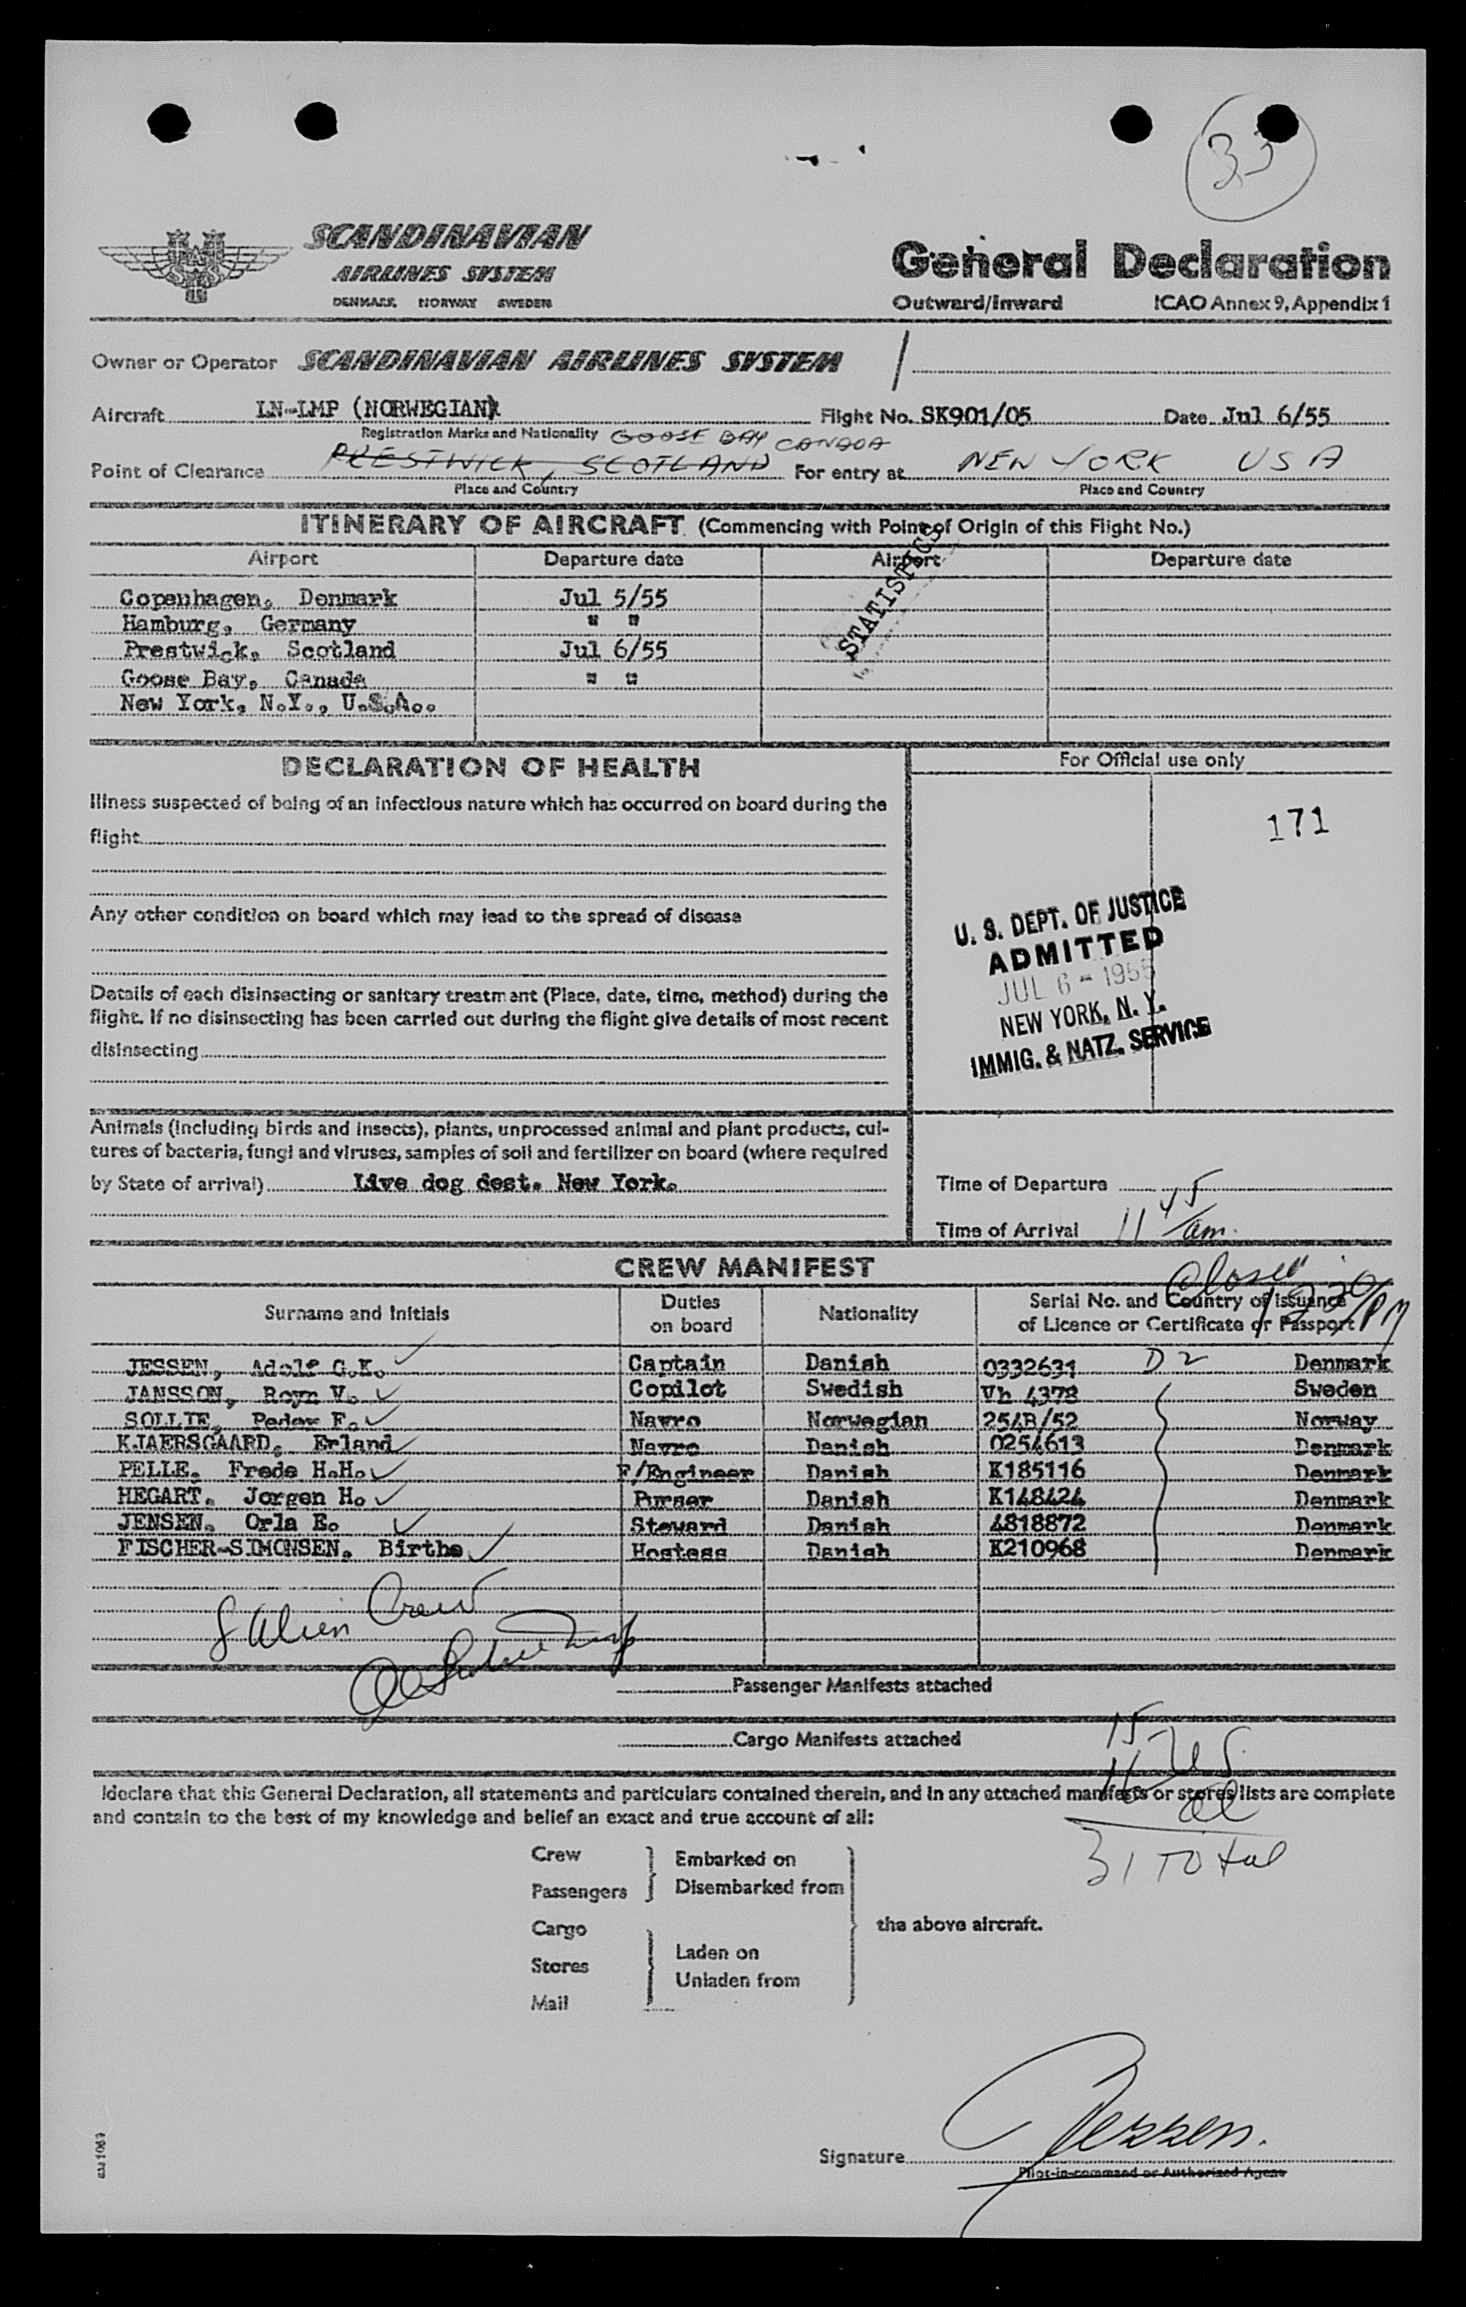 33
SCANDINAVIAN
AIRLINES SYSTEM
DENMARK NORWAY SWEDEN
General Declaration
Outward/Inward ICAO Annex 9, Appendix 1
Owner or Operator SCANDINAVIAN AIRLINES SYSTEM
Aircraft LN-LMP (NORWEGIAN) Flight No. SK901/05 Date Jul 6/55
Registration Marks and Nationality GOOSE BAY CANADA
Point of Clearance PRESTWICK, SCOTLAND For entry at NEW YORK USA
Place and Country Place and Country
ITINERARY OF AIRCRAFT (Commencing with Point of Origin of this Flight No.)
Airport Departure date Airport Departure date
STATISTICS
Copenhagen, Denmark Jul 5/55
Hamburg, Germany " "
Prestwick, Scotland Jul 6/55
Goose Bay, Canada " "
New York, N.Y., U.S.A..
DECLARATION OF HEALTH
For Official use only
Illness suspected of being of an infectious nature which has occurred on board during the
flight
171
Any other condition on board which may lead to the spread of disease
U. S. DEPT. OF JUSTICE
ADMITTED
JUL 6 - 1955
NEW YORK, N. Y.
IMMIG. & NATZ. SERVICE
Details of each disinsecting or sanitary treatment (Place, date, time, method) during the
flight. If no disinsecting has been carried out during the flight give details of most recent
disinsecting
Animals (including birds and insects), plants, unprocessed animal and plant products, cul-
tures of bacteria, fungi and viruses, samples of soil and fertilizer on board (where required
by State of arrival) Live dog dest. New York.
Time of Departure
Time of Arrival 11 45 am.
CREW MANIFEST
Closed 1230 PM
Surname and Initials Duties on board Nationality Serial No. and Country of Issuance
of Licence or Certificate or Passport
JESSEN, Adolf G.K. Captain Danish 0332631 D 2 Denmark
JANSSON, Royn V. Copilot Swedish Vh 4378 Sweden
SOLLIE, Peder F. Navro Norwegian 254B/52 Norway
KJAERSGAARD, Erland Navro Danish 0254613 Denmark
PELLE, Frede H.H. F/Engineer Danish K185116 Denmark
HEGART, Jorgen H. Purser Danish K148424 Denmark
JENSEN, Orla E. Steward Danish 4818872 Denmark
FISCHER-SIMONSEN, Birthe Hostess Danish K210968 Denmark
8 Alien Crew
Passenger Manifests attached
Cargo Manifests attached
15 - US
16 al
31 Total
I declare that this General Declaration, all statements and particulars contained therein, and in any attached manifests or stores lists are complete
and contain to the best of my knowledge and belief an exact and true account of all:
Crew Embarked on
Passengers Disembarked from
Cargo the above aircraft.
Stores Laden on
Unladen from
Mail
Signature Jessen.
Pilot-in-command or Authorized Agent